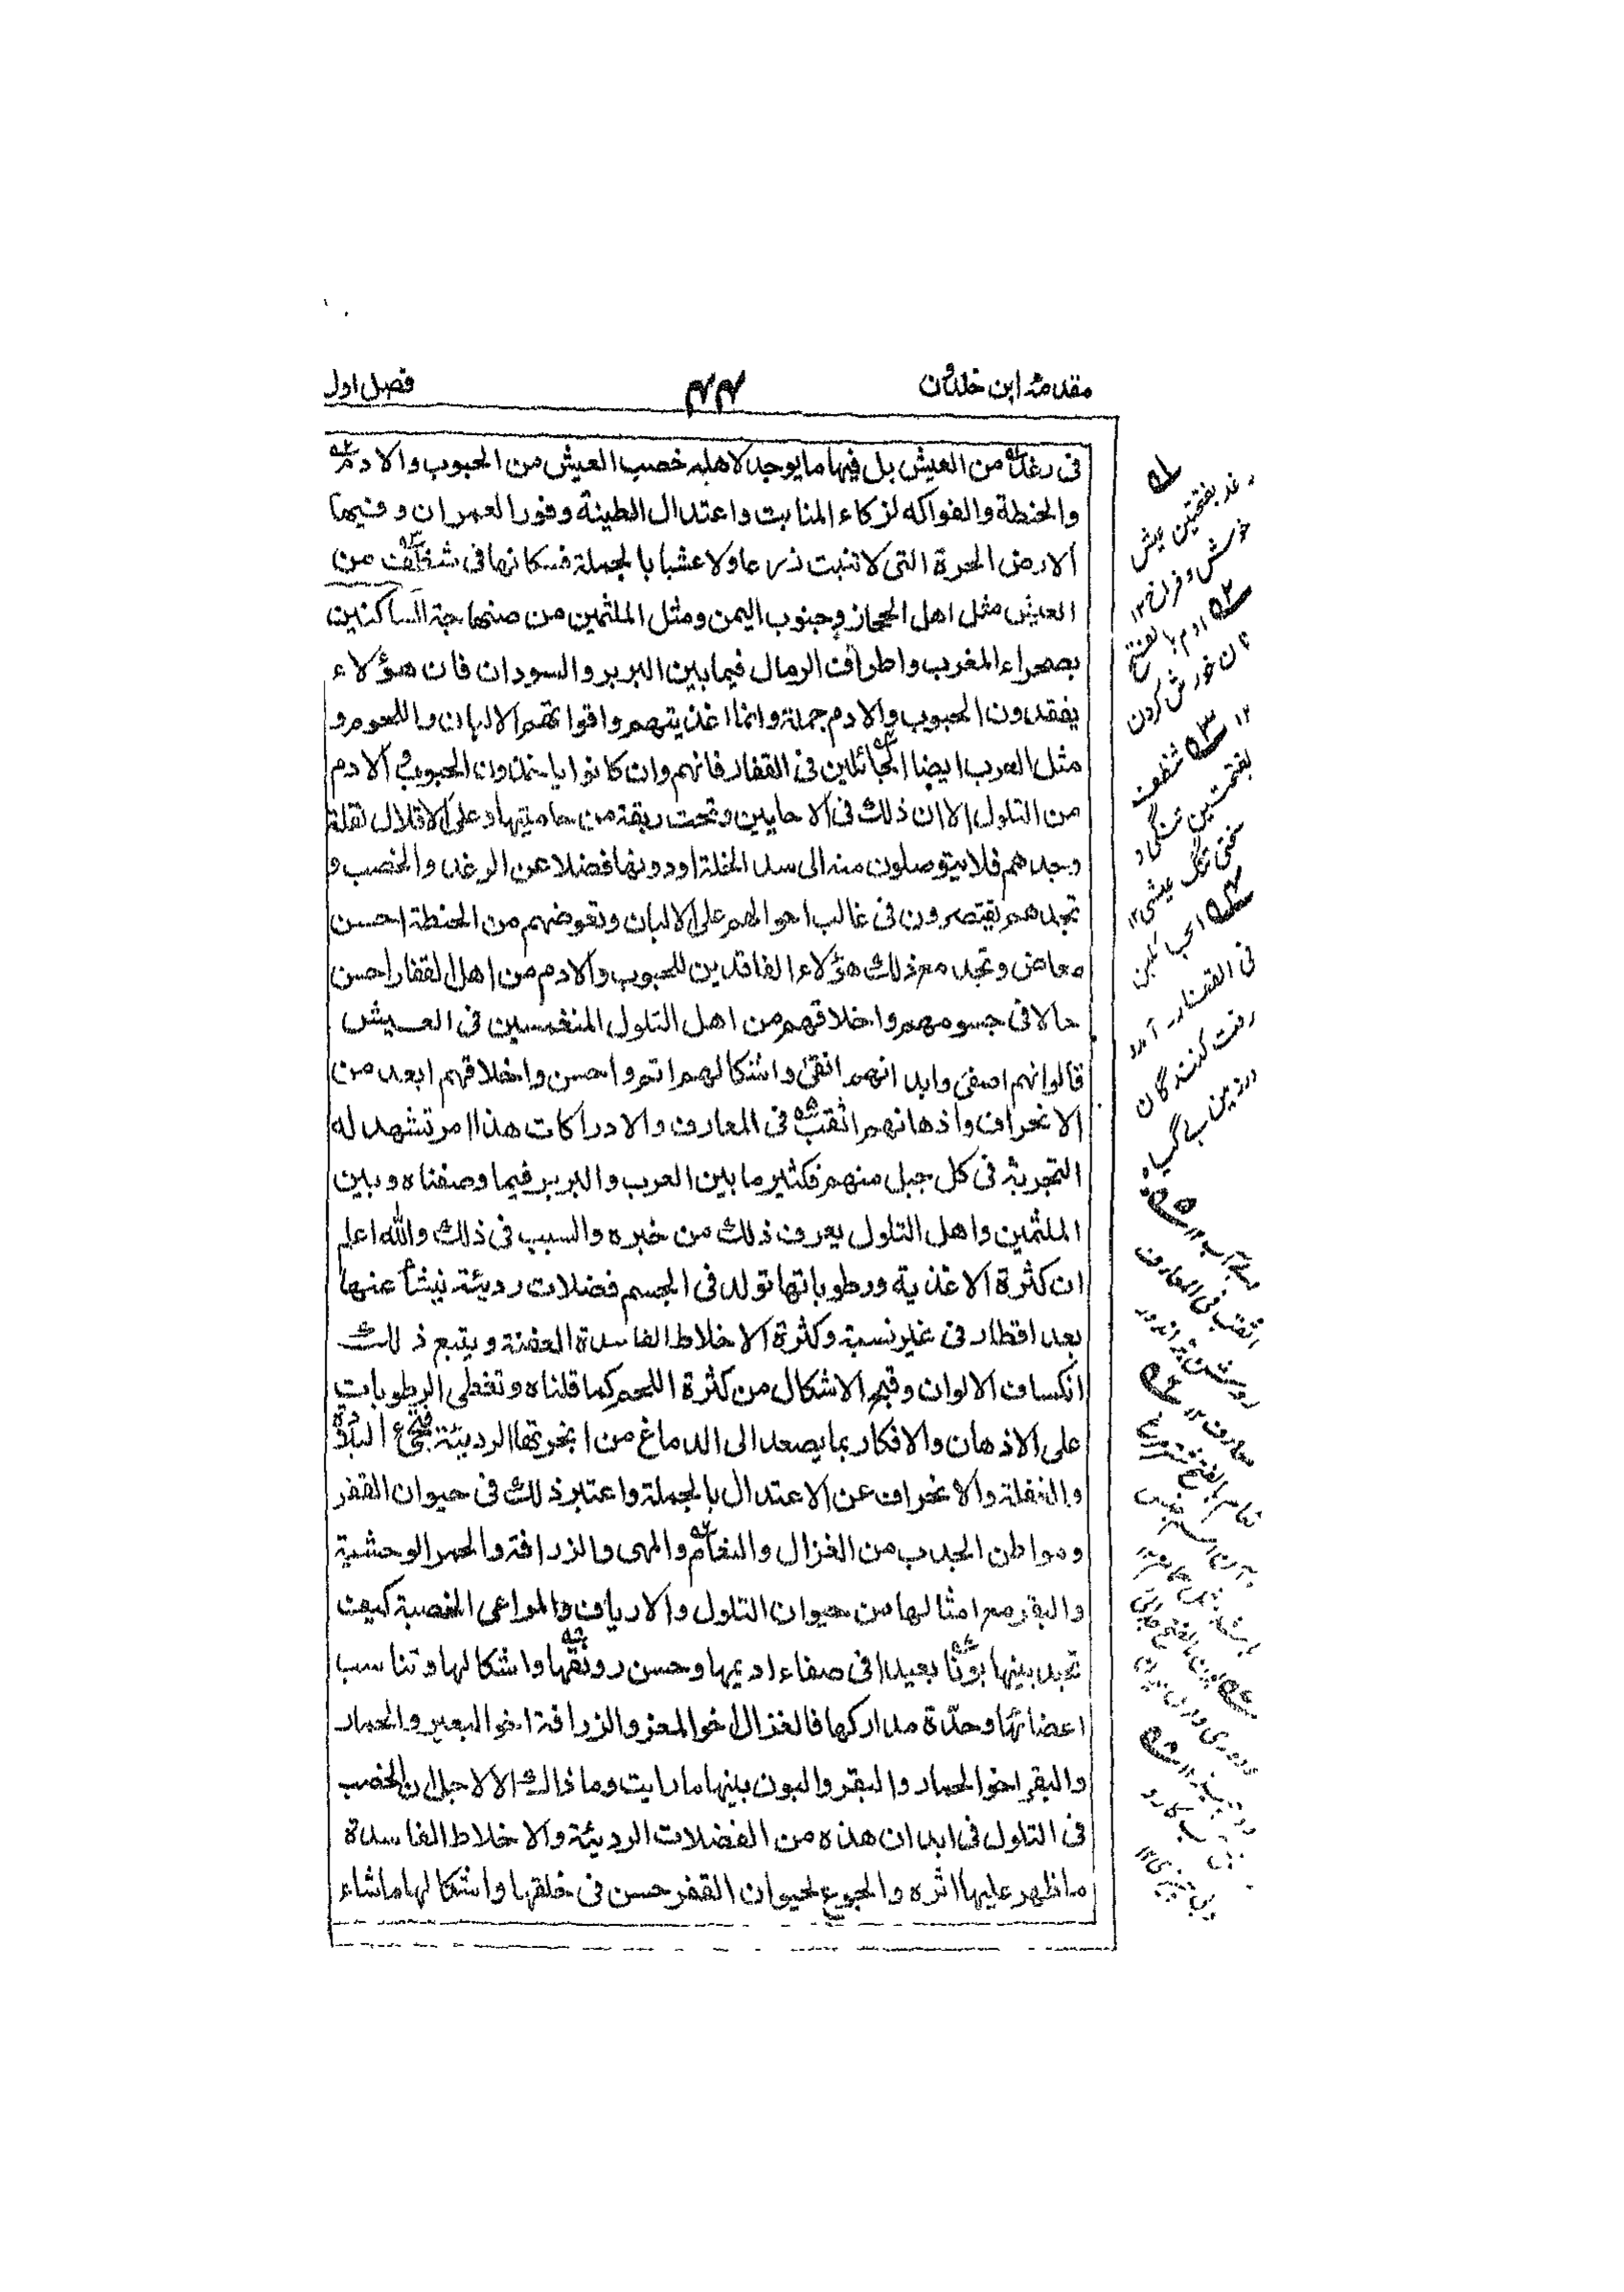 مقدمہ ابن خلدون
۴۴
فصل اول
فی رغد من العیش بل فیها ما یوجد لاهله خصب العیش من الحبوب والادم
والحنطة والفواکه لزکاء المنابت واعتدال الطینة وفور العمران وفیها
الارض الحرة التی لا تنبت زرعا ولا عشبا بالجملة فسکانها فی شظف من
العیش مثل اهل الحجاز وجنوب الیمن ومثل الملثمین من صنهاجة الساکنین
بصحراء المغرب واطراف الرمال فیما بین البربر والسودان فان هؤلاء
یفقدون الحبوب والادم جملة وانما اغذیتهم واقواتهم الالبان واللحوم و
مثل العرب ایضا الجائلین فی القفار فانهم وان کانوا یاخذون الحبوب والادم
من التلول الا ان ذلک فی الاحایین وتحت ربقة من حامیتها وعلی الاقلال لقلة
وجدهم فلا یتوصلون منه الی سد الخلة او دونها فضلا عن الرغد والخصب و
تجدهم یقتصرون فی غالب احوالهم علی الالبان وتعوضهم من الحنطة احسن
معاض وتجد مع ذلک هؤلاء الفاقدین للحبوب والادم من اهل القفار احسن
حالا فی جسومهم واخلاقهم من اهل التلول المنغمسین فی العیش
فالوانهم اصفی وابدانهم انقی واشکالهم اتم واحسن واخلاقهم ابعد من
الانحراف واذهانهم اثقب فی المعارف والادراکات هذا امر تشهد له
التجربة فی کل جبل منهم فکثیر ما بین العرب والبربر فیما وصفناه وبین
الملثمین واهل التلول یعرف ذلک من خبره والسبب فی ذلک والله اعلم
ان کثرة الاغذیة ورطوباتها تولد فی الجسم فضلات ردیئة ینشأ عنها
بعد اقطار فی غیر نسبة وکثرة الاخلاط الفاسدة العفنة ویتبع ذلک
انکساف الالوان وقبح الاشکال من کثرة اللحم کما قلناه وتغطی الرطوبات
علی الاذهان والافکار بما یصعد الی الدماغ من ابخرتها الردیئة فتجیء البلادة
والغفلة والانحراف عن الاعتدال بالجملة واعتبر ذلک فی حیوان القفر
ومواطن الجدب من الغزال والنعام والمهی والزرافة والحمر الوحشیة
والبقر مع امثالها من حیوان التلول والاریاف والمراعی الخصبة کیف
تجد بینها بونا بعیدا فی صفاء ادیمها وحسن رونقها واشکالها وتناسب
اعضائها وحدّة مدارکها فالغزال اخو المعز والزرافة اخو البعیر والحمار
والبقر اخو الحمار والبقر والبون بینها ما رایت وما ذاک الا لاجل ان الخصب
فی التلول فی ابدان هذه من الفضلات الردیئة والاخلاط الفاسدة
ما ظهر علیها اثره والجوع لحیوان القفر حسن فی خلقها واشکالها ما شاء
۱؎
رغد بفتحتین عیش
خوش و فراخ ۱۲
۲؎ ادم بالفتح
نان خورش کردن
۱۲ ۳؎ شظف
بفتحتین تنگی و
سختی تنگ عیشی ۱۲
۴؎ الجائلین
فی القفار۔ آمد و
رفت کنندگان
در زمین بے گیاه و
بے آب ۱۲ ۵؎
اثقب فی المعارف